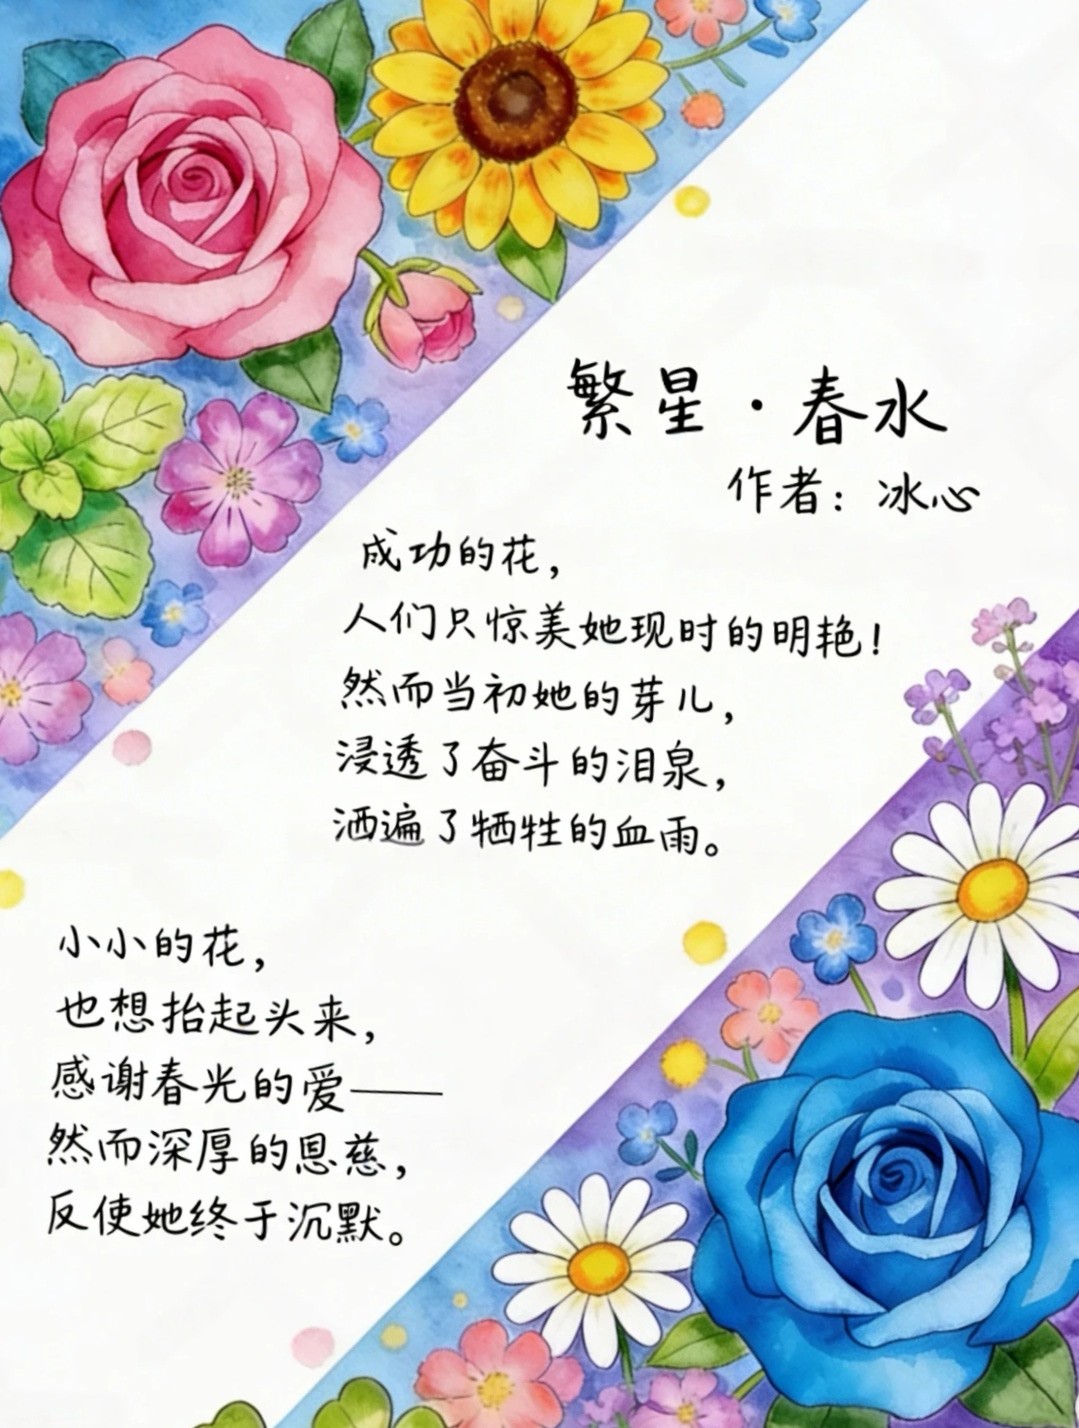 繁星·春水
作者：冰心
成功的花，
人们只惊美她现时的明艳！
然而当初她的芽儿，
浸透了奋斗的泪泉，
洒遍了牺牲的血雨。
小小的花，
也想抬起头来，
感谢春光的爱——
然而深厚的恩慈，
反使她终于沉默。